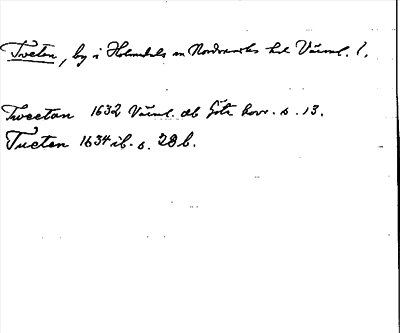 Tveten, by i Holmedals sn Nordmarks hd Värml. l.
Tweetan 1632 Värml. ab Göta hovr. s. 13.
Tueten 1634 ib. s. 28 b.